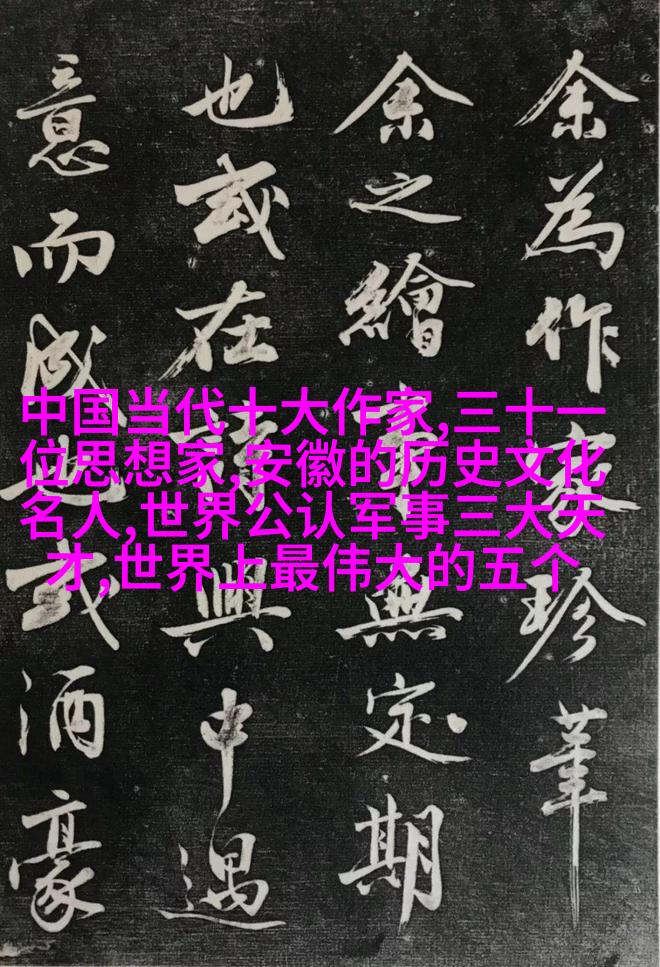 余為作珍
余之繪無定期
也或在興中遇
意而成或酒豪
中国当代十大作家,三十一
位思想家,安徽的历史文化
名人,世界公认军事三大天
才,世界上最伟大的五个